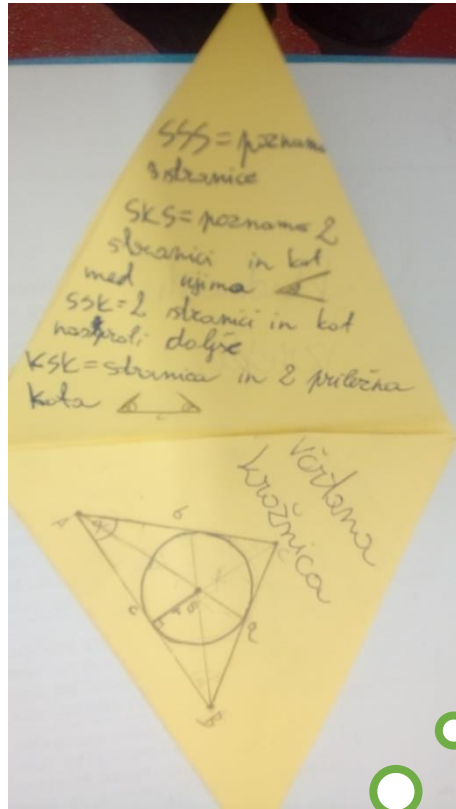 SSS = poznamo
3 stranice
SKS = poznamo 2
stranici in kot
med njima
SSK = 2 stranici in kot
nasproti daljše
KSK = stranica in 2 priležna
kota
c
včrtana
krožnica
A
b
C
c
r
S
a
B